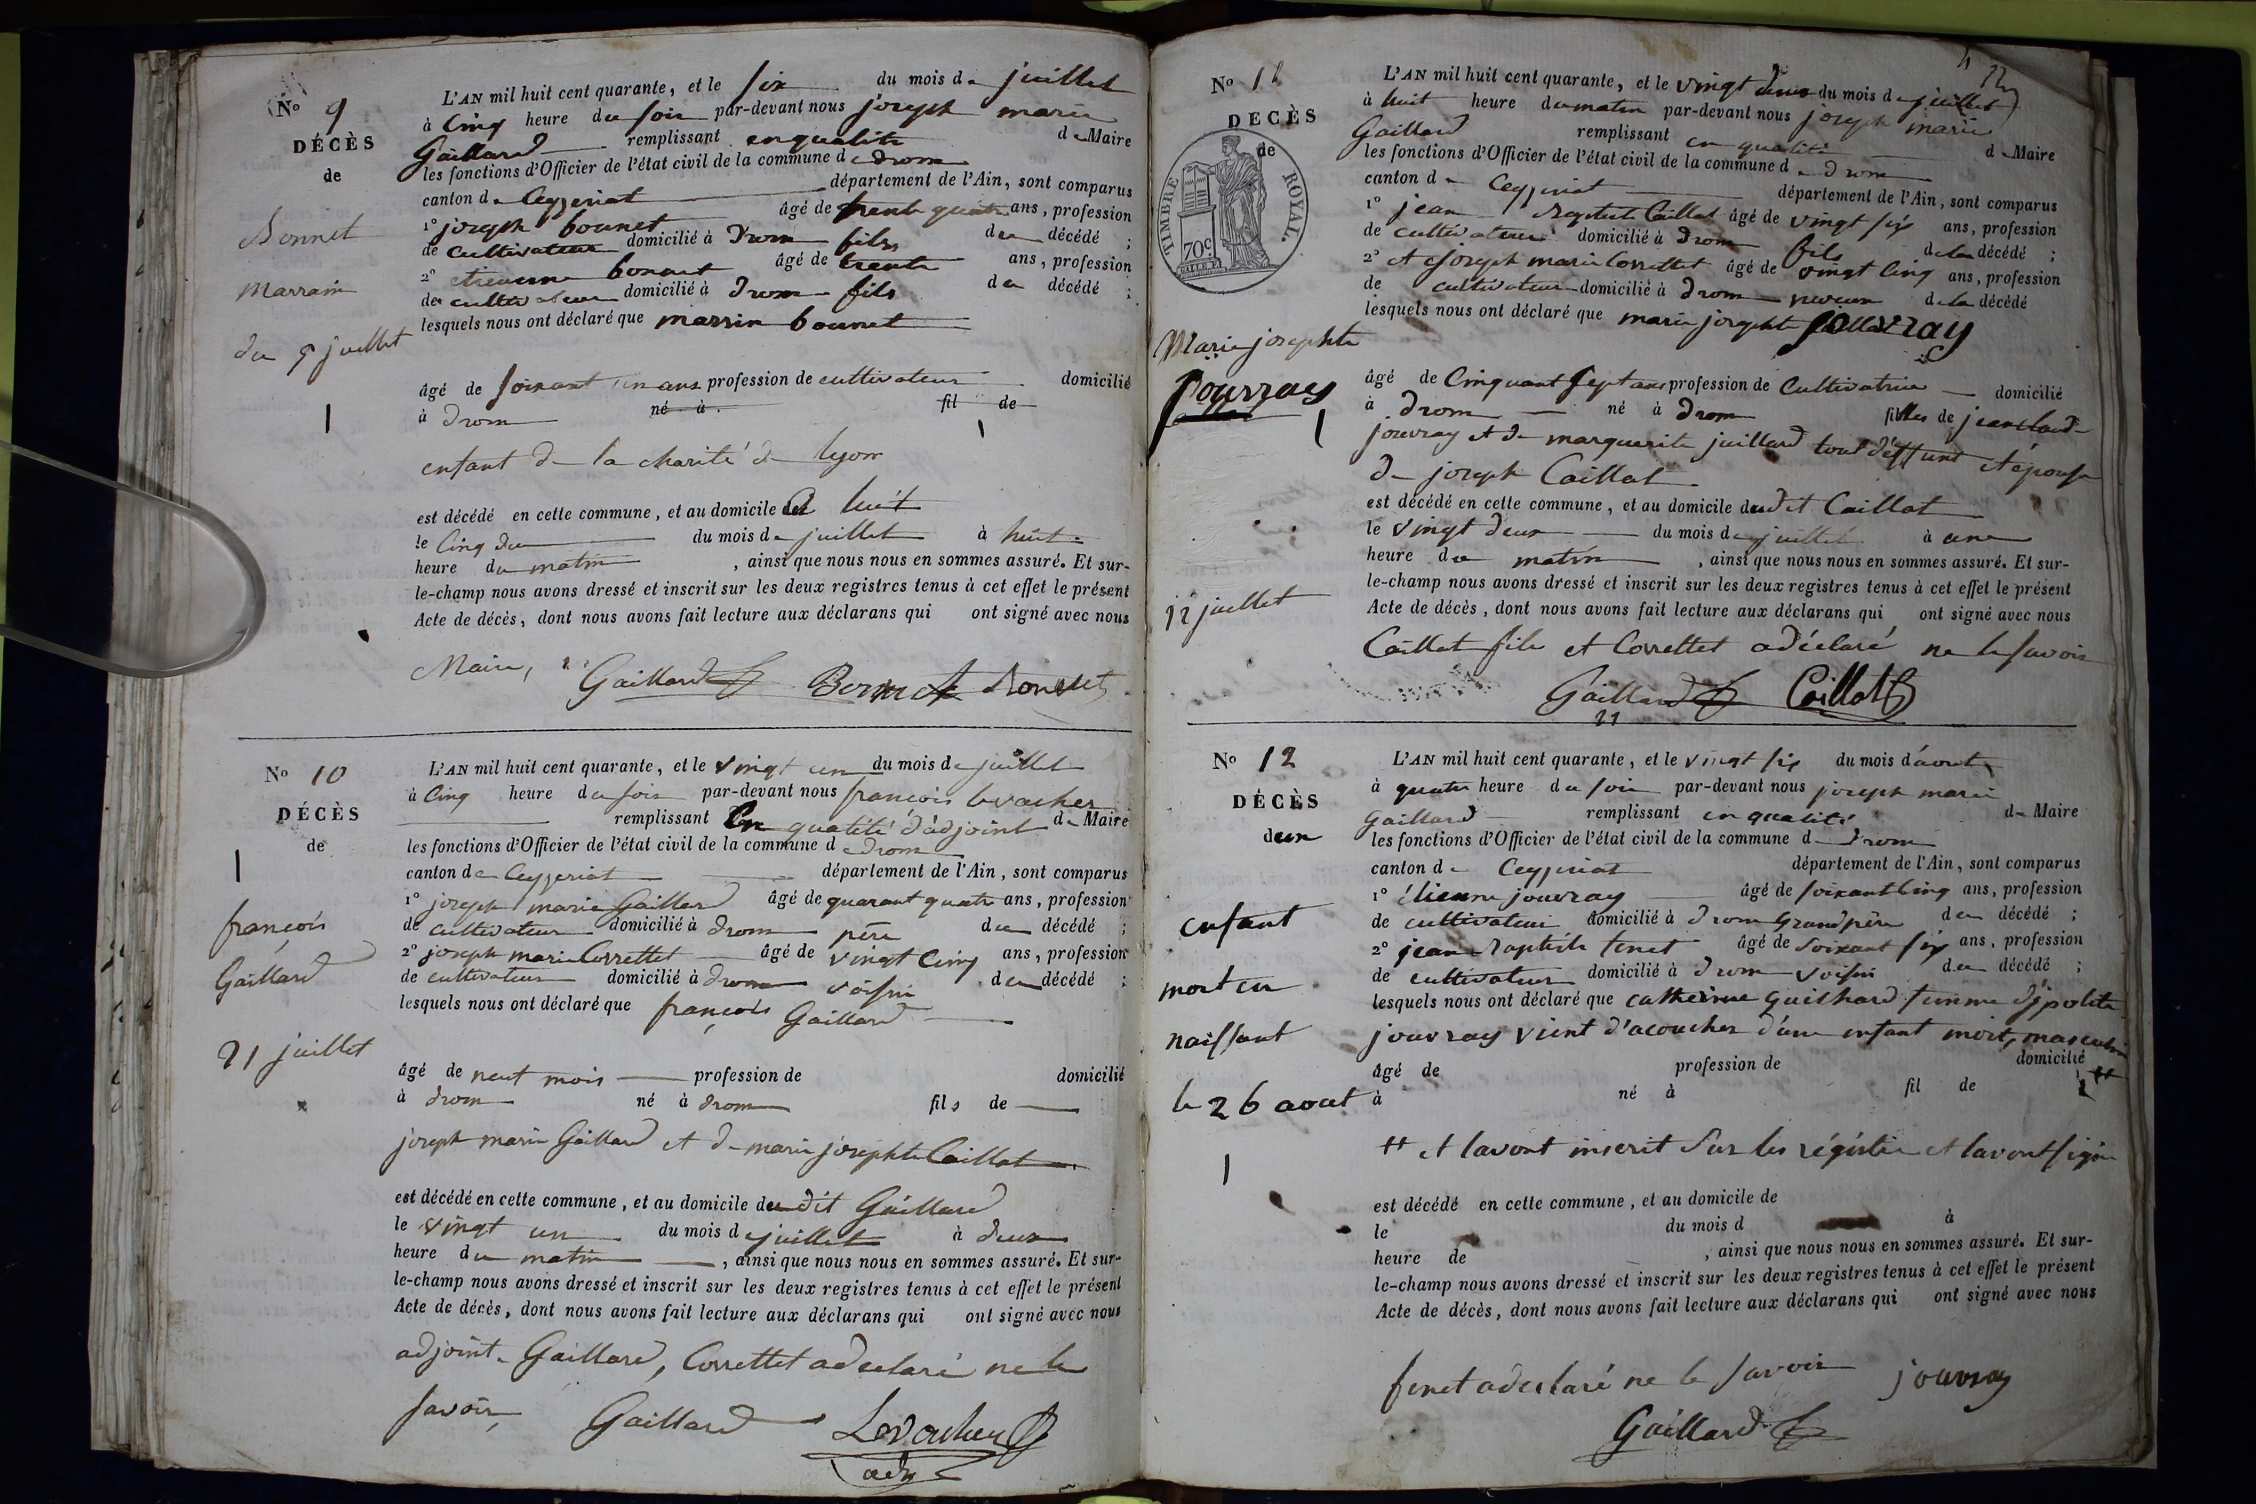 No 9
DÉCÈS
de
Bonnet
marrain
du 5 juillet
L'AN mil huit cent quarante, et le six du mois de juillet
à cinq heure du soir par-devant nous joseph marie
Gaillard remplissant en qualité de Maire
les fonctions d'Officier de l'état civil de la commune de drom
canton de Ceyzeriat département de l'Ain, sont comparus
1° joseph bonnet âgé de trente quatre ans, profession
de cultivateur domicilié à Drom fils du décédé ;
2° etienne bonnet âgé de trente ans, profession
de cultivateur domicilié à Drom fils du décédé ;
lesquels nous ont déclaré que marrin bonnet
âgé de soixant un ans profession de cultivateur domicilié
à Drom né à fil de
enfant de la charité de lyon
est décédé en cette commune, et au domicile
le cinq du du mois de juillet à huit
heure du matin , ainsi que nous nous en sommes assuré. Et sur-
le-champ nous avons dressé et inscrit sur les deux registres tenus à cet effet le présent
Acte de décès, dont nous avons fait lecture aux déclarans qui ont signé avec nous
Maire, Gaillard Bonnet Bonnet
No 10
DÉCÈS
de
françois
Gaillard
21 juillet
L'AN mil huit cent quarante, et le vingt un du mois de juillet
à cinq heure du soir par-devant nous françois levacher
remplissant en qualité d'adjoint de Maire
les fonctions d'Officier de l'état civil de la commune de drom
canton de Ceyzeriat département de l'Ain, sont comparus
1° joseph marie Gaillard âgé de quarant quatre ans, profession
de cultivateur domicilié à drom père du décédé ;
2° joseph marie Correttet âgé de vingt cinq ans, profession
de cultivateur domicilié à drom voisin du décédé ;
lesquels nous ont déclaré que françois Gaillard
âgé de neuf mois profession de domicilié
à drom né à drom fils de
joseph marie Gaillard et de marie josephte Caillat
est décédé en cette commune, et au domicile dudit Gaillard
le vingt un du mois de juillet à deux
heure du matin , ainsi que nous nous en sommes assuré. Et sur-
le-champ nous avons dressé et inscrit sur les deux registres tenus à cet effet le présent
Acte de décès, dont nous avons fait lecture aux déclarans qui ont signé avec nous
adjoint. Gaillard, Correttet a déclaré ne le
savoir, Gaillard Levacher
adj
No 11
DÉCÈS
de
TIMBRE ROYAL.
70c
Marie josephte
jouvray
22 juillet
L'AN mil huit cent quarante, et le vingt deux du mois de juillet
à huit heure du matin par-devant nous joseph marie
Gaillard remplissant en qualité de Maire
les fonctions d'Officier de l'état civil de la commune de drom
canton de Ceyzeriat département de l'Ain, sont comparus
1° jean Baptiste Caillat âgé de vingt six ans, profession
de cultivateur domicilié à drom fils de la décédé ;
2° et joseph marie Correttet âgé de vingt cinq ans, profession
de cultivateur domicilié à drom neveu de la décédé
lesquels nous ont déclaré que marie josephte jouvray
âgé de cinquant sept ans profession de Cultivatrice domicilié
à drom né à drom filles de jean claude
jouvray et de marguerite juillard tout déffunt et épouse
de joseph Caillat
est décédé en cette commune, et au domicile dudit Caillat
le vingt deux du mois de juillet à une
heure du matin , ainsi que nous nous en sommes assuré. Et sur-
le-champ nous avons dressé et inscrit sur les deux registres tenus à cet effet le présent
Acte de décès, dont nous avons fait lecture aux déclarans qui ont signé avec nous
Caillat fils et Correttet a déclaré ne le savoir
Gaillard Caillat
No 12
DÉCÈS
dun
enfant
mort en
naissant
le 26 aout
L'AN mil huit cent quarante, et le vingt six du mois d'aout
à quatre heure du soir par-devant nous joseph marie
Gaillard remplissant en qualité de Maire
les fonctions d'Officier de l'état civil de la commune de drom
canton de Ceyzeriat département de l'Ain, sont comparus
1° étienne jouvray âgé de soixant cinq ans, profession
de cultivateur domicilié à drom Grand père du décédé ;
2° jean Baptiste fenet âgé de soixant six ans, profession
de cultivateur domicilié à drom voisin du décédé ;
lesquels nous ont déclaré que catherinne Guichard femme d'ypolite
jouvray vient d'acoucher d'une enfant mort, masculin
âgé de profession de domicilié
à né à fil de
et lavont inscrit sur les régistre et lavont signé
est décédé en cette commune, et au domicile de
le du mois d à
heure de , ainsi que nous nous en sommes assuré. Et sur-
le-champ nous avons dressé et inscrit sur les deux registres tenus à cet effet le présent
Acte de décès, dont nous avons fait lecture aux déclarans qui ont signé avec nous
fenet a déclaré ne le savoir jouvray
Gaillard